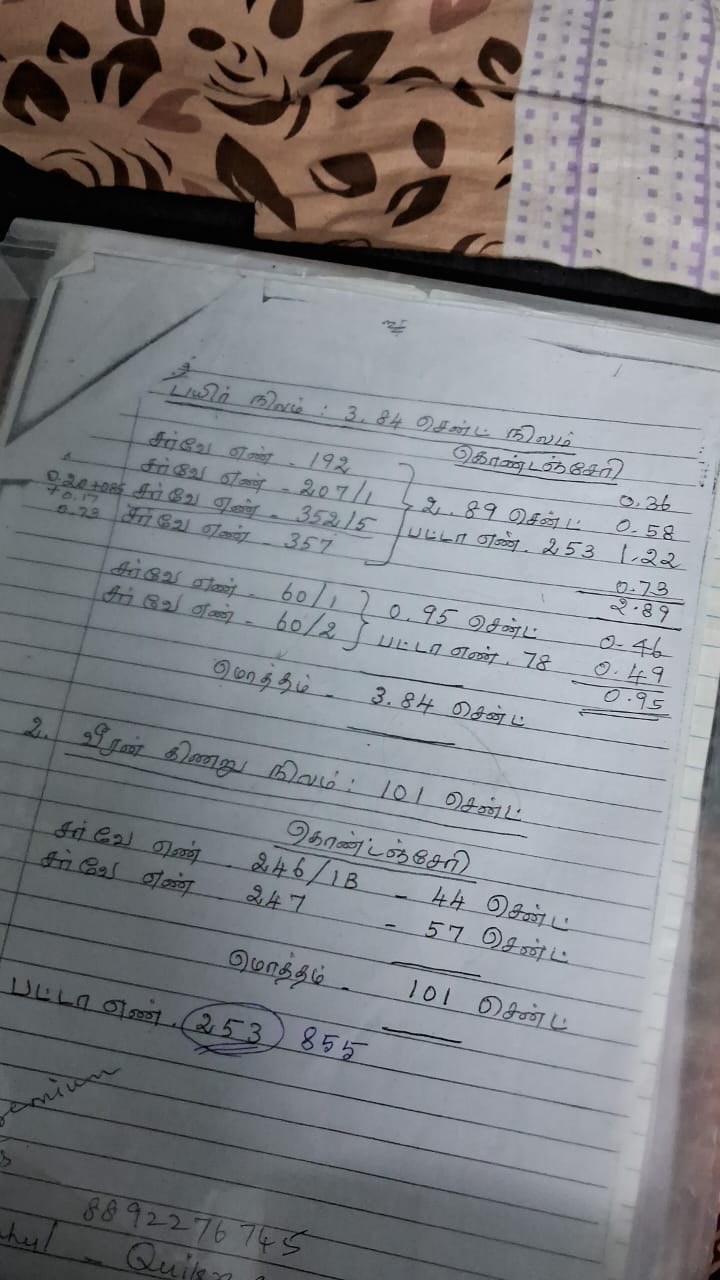 உ
பயிர் நிலம் : 3.84 சென்ட் நிலம்
கொண்டஞ்சேரி
சர்வே எண் - 192 0.36
சர்வே எண் - 207/1 2.89 சென்ட் 0.58
சர்வே எண் - 352/5 பட்டா எண். 253 1.22
0.73 சர்வே எண் - 357 0.73
2.89
சர்வே எண் - 60/1 0.95 சென்ட் 0.46
சர்வே எண் - 60/2 பட்டா எண். 78 0.49
0.95
மொத்தம் - 3.84 சென்ட்
2. வீரன் கிணறு நிலம் : 101 சென்ட்
கொண்டஞ்சேரி
சர்வே எண் - 246/1B - 44 சென்ட்
சர்வே எண் - 247 - 57 சென்ட்
மொத்தம் - 101 சென்ட்
பட்டா எண். 253 855
8892276745